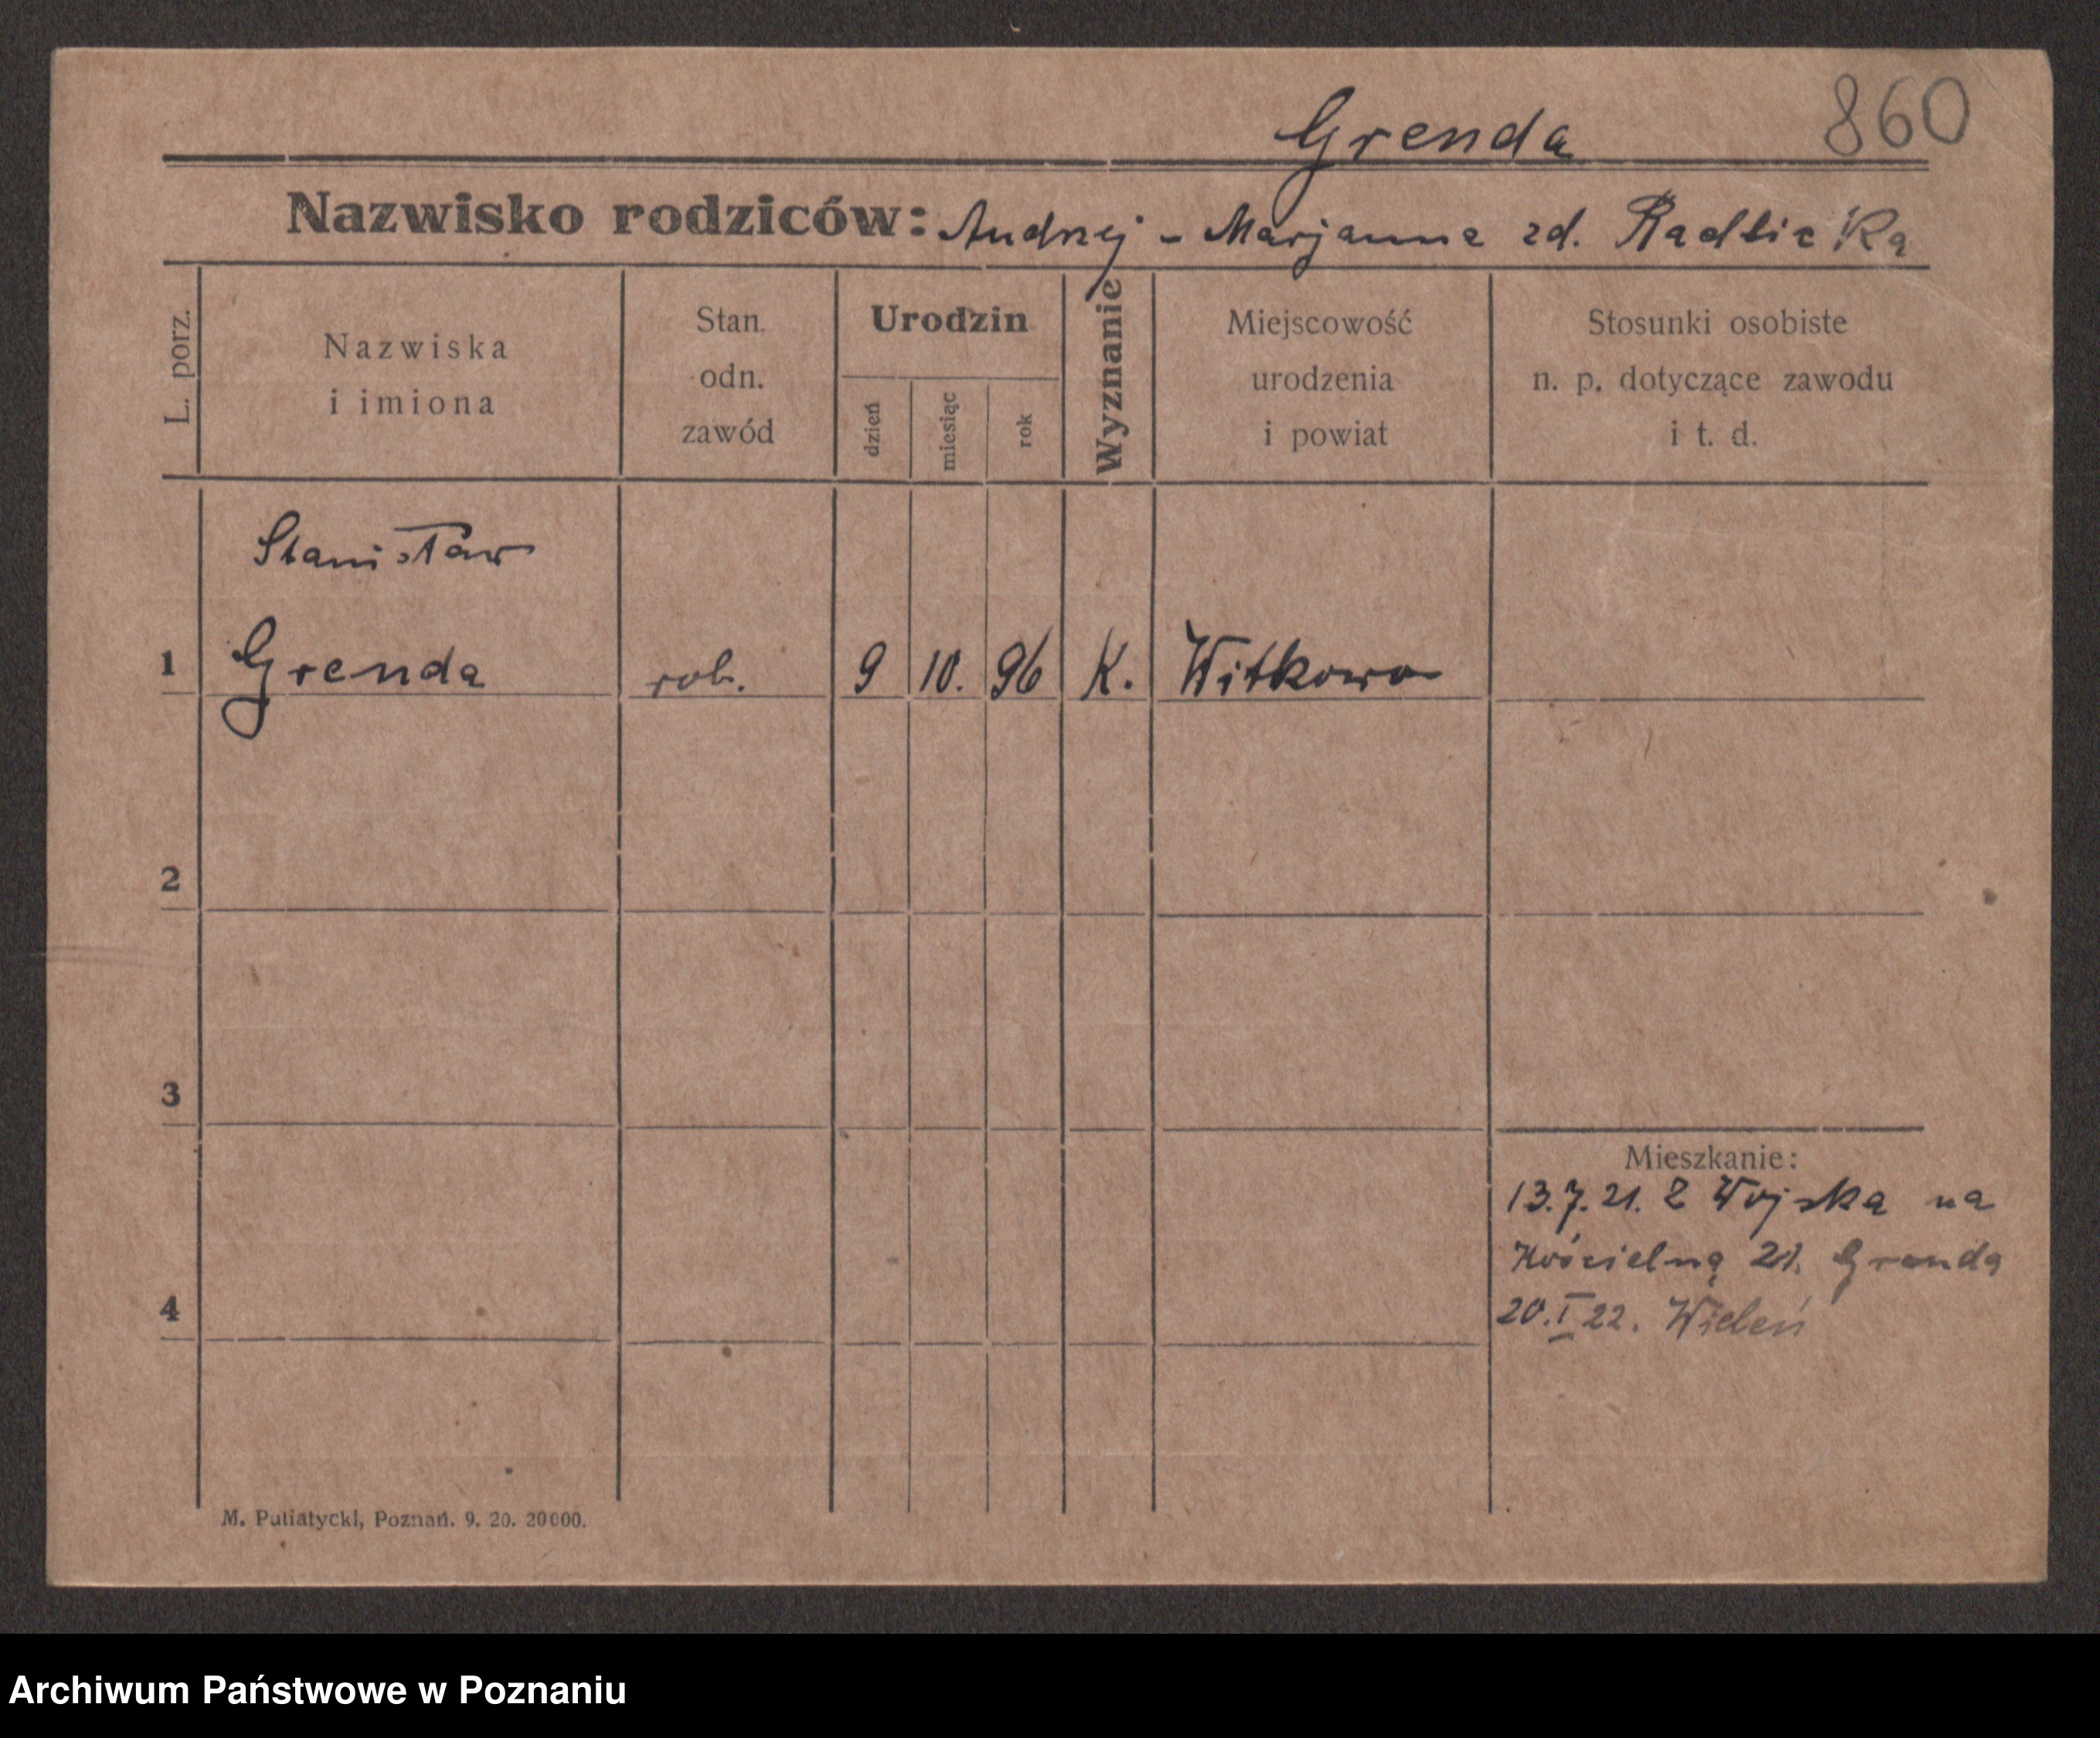 860
Grenda
Nazwisko rodziców: Andrzej - Marjanna zd. Radlicka
L. porz.
Nazwiska
i imiona
Stan.
odn.
zawód
Urodzin
dzień
miesiąc
rok
Wyznanie
Miejscowość
urodzenia
i powiat
Stosunki osobiste
n. p. dotyczące zawodu
i t. d.
Stanisław
1 Grenda rob. 9 10. 96 K. Witkowo
2
3
Mieszkanie:
13.7.21. Z Wojska na
Kościelną 21. Grenda
20.I 22. Wieleń
4
M. Putiatycki, Poznań. 9. 20. 20000.
Archiwum Państwowe w Poznaniu